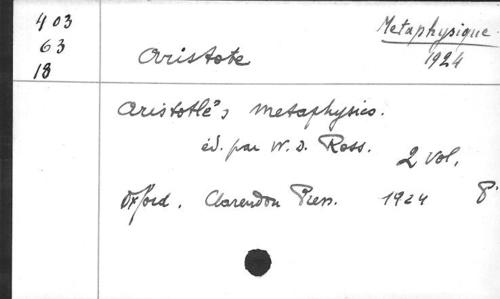 403
63
18
Metaphysique
1924
Aristote
Aristotle's metaphysics.
éd. par W. D. Ross.
2 vol.
Oxford. Clarendon Press. 1924 8°